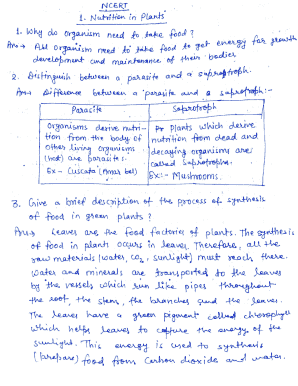 NCERT
1. Nutrition in Plants
1. Why do organism need to take food?
Ans→ All organism need to take food to get energy for growth
development and maintenance of their bodies
2. Distinguish between a parasite and a saprotroph.
Ans→ Difference between a parasite and a saprotroph:-
Parasite
Organisms derive nutri-
tion from the body of
other living organisms
(host) are parasite.
Ex- Cuscuta (Amar bel)
Saprotroph
Plants which derive
nutrition from dead and
decaying organisms are
called Saprotrophs.
Ex:- Mushrooms.
3. Give a brief description of the process of synthesis
of food in green plants?
Ans→ Leaves are the food factories of plants. The synthesis
of food in plants occurs in leaves. Therefore, all the
raw materials (water, CO2, sunlight) must reach there.
Water and minerals are transported to the leaves
by the vessels which run like pipes throughout
the root, the stem, the branches and the leaves.
The leaves have a green pigment called chlorophyll
which helps leaves to capture the energy of the
sunlight. This energy is used to synthesis
(prepare) food from carbon dioxide and water.